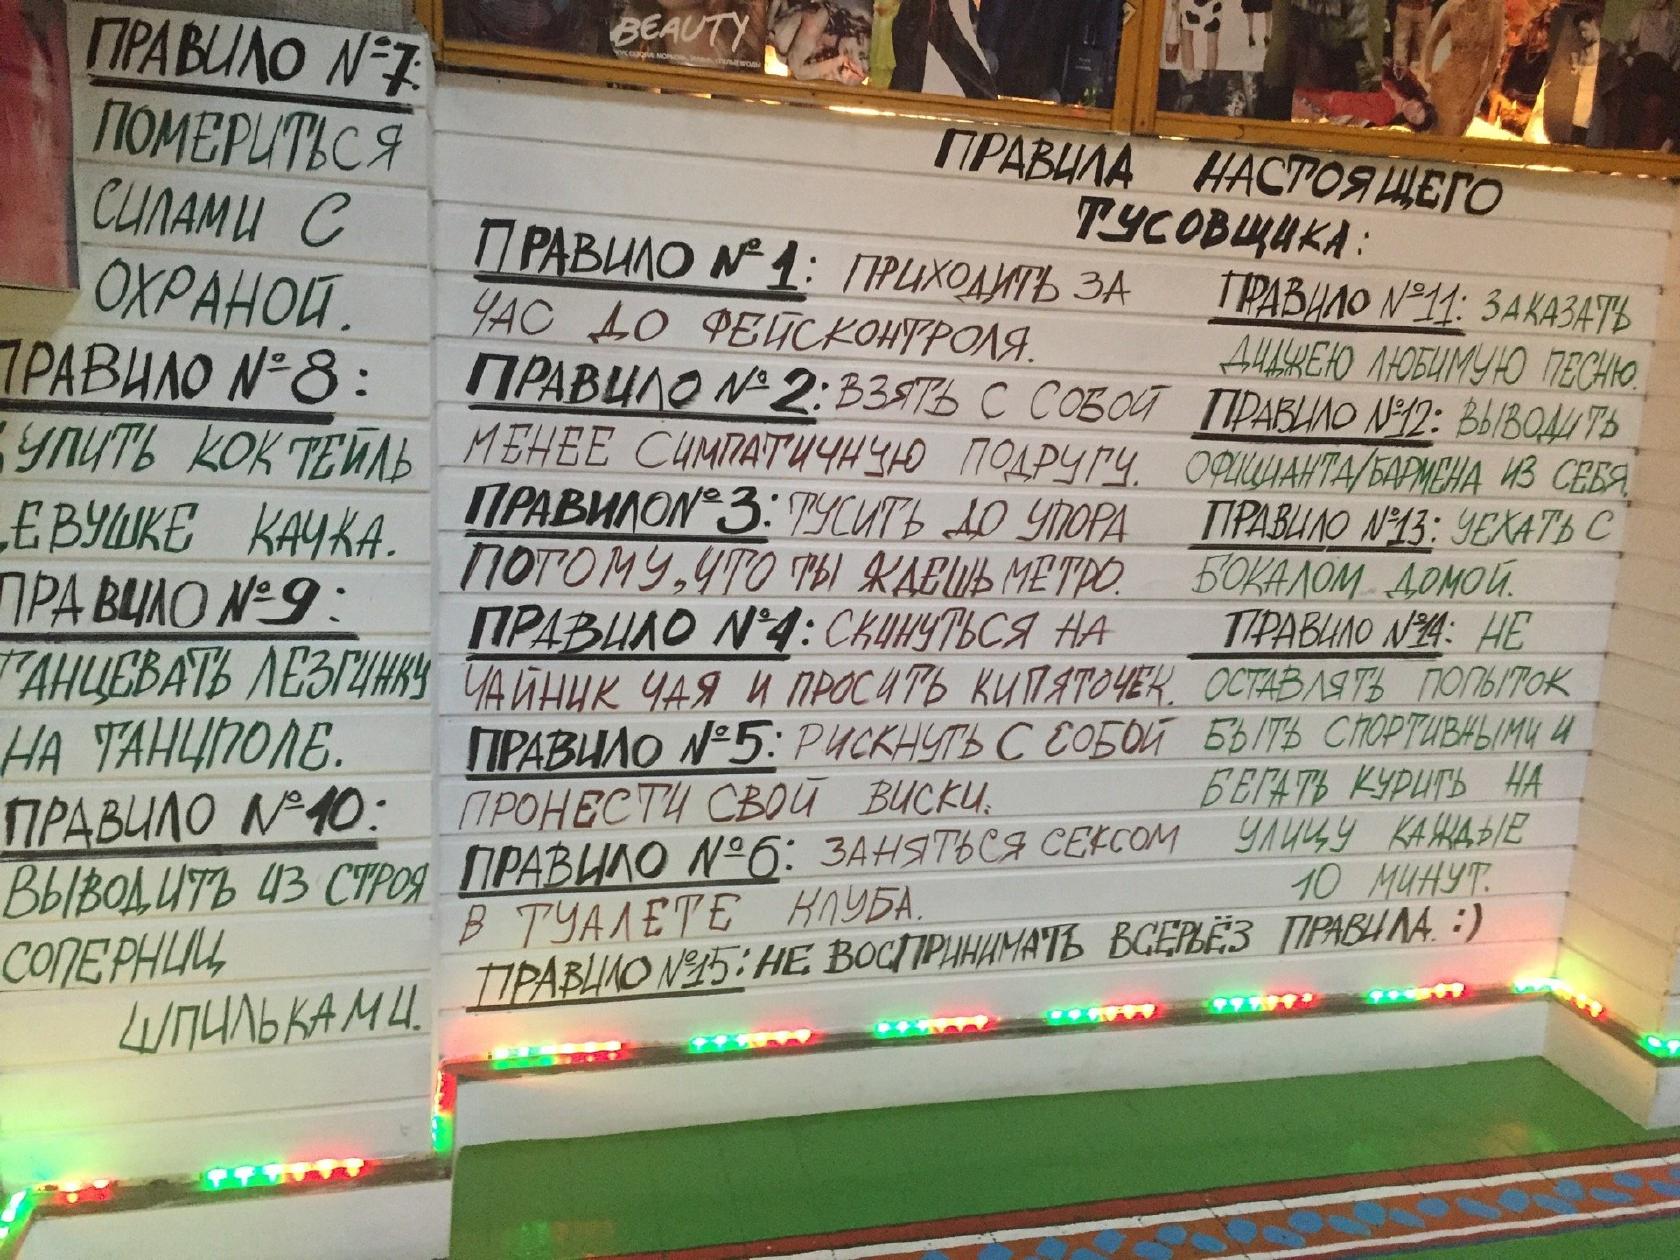 BEAUTY
ПРАВИЛА НАСТОЯЩЕГО
ТУСОВЩИКА:
ПРАВИЛО №1: ПРИХОДИТЬ ЗА
ЧАС ДО ФЕЙСКОНТРОЛЯ.
ПРАВИЛО №2: ВЗЯТЬ С СОБОЙ
МЕНЕЕ СИМПАТИЧНУЮ ПОДРУГУ.
ПРАВИЛО №3: ТУСИТЬ ДО УПОРА
ПОТОМУ, ЧТО ТЫ ЖДЕШЬ МЕТРО.
ПРАВИЛО №4: СКИНУТЬСЯ НА
ЧАЙНИК ЧАЯ И ПРОСИТЬ КИПЯТОЧЕК.
ПРАВИЛО №5: РИСКНУТЬ С СОБОЙ
ПРОНЕСТИ СВОЙ ВИСКИ.
ПРАВИЛО №6: ЗАНЯТЬСЯ СЕКСОМ
В ТУАЛЕТЕ КЛУБА.
ПРАВИЛО №7:
ПОМЕРИТЬСЯ
СИЛАМИ С
ОХРАНОЙ.
ПРАВИЛО №8:
КУПИТЬ КОКТЕЙЛЬ
ДЕВУШКЕ КАЧКА.
ПРАВИЛО №9:
ТАНЦЕВАТЬ ЛЕЗГИНКУ
НА ТАНЦПОЛЕ.
ПРАВИЛО №10:
ВЫВОДИТЬ ИЗ СТРОЯ
СОПЕРНИЦ
ШПИЛЬКАМИ.
ПРАВИЛО №11: ЗАКАЗАТЬ
ДИДЖЕЮ ЛЮБИМУЮ ПЕСНЮ.
ПРАВИЛО №12: ВЫВОДИТЬ
ОФИЦИАНТА/БАРМЕНА ИЗ СЕБЯ.
ПРАВИЛО №13: УЕХАТЬ С
БОКАЛОМ ДОМОЙ.
ПРАВИЛО №14: НЕ
ОСТАВЛЯТЬ ПОПЫТОК
БЫТЬ СПОРТИВНЫМИ И
БЕГАТЬ КУРИТЬ НА
УЛИЦУ КАЖДЫЕ
10 МИНУТ.
ПРАВИЛО №15: НЕ ВОСПРИНИМАТЬ ВСЕРЬЁЗ ПРАВИЛА. :)